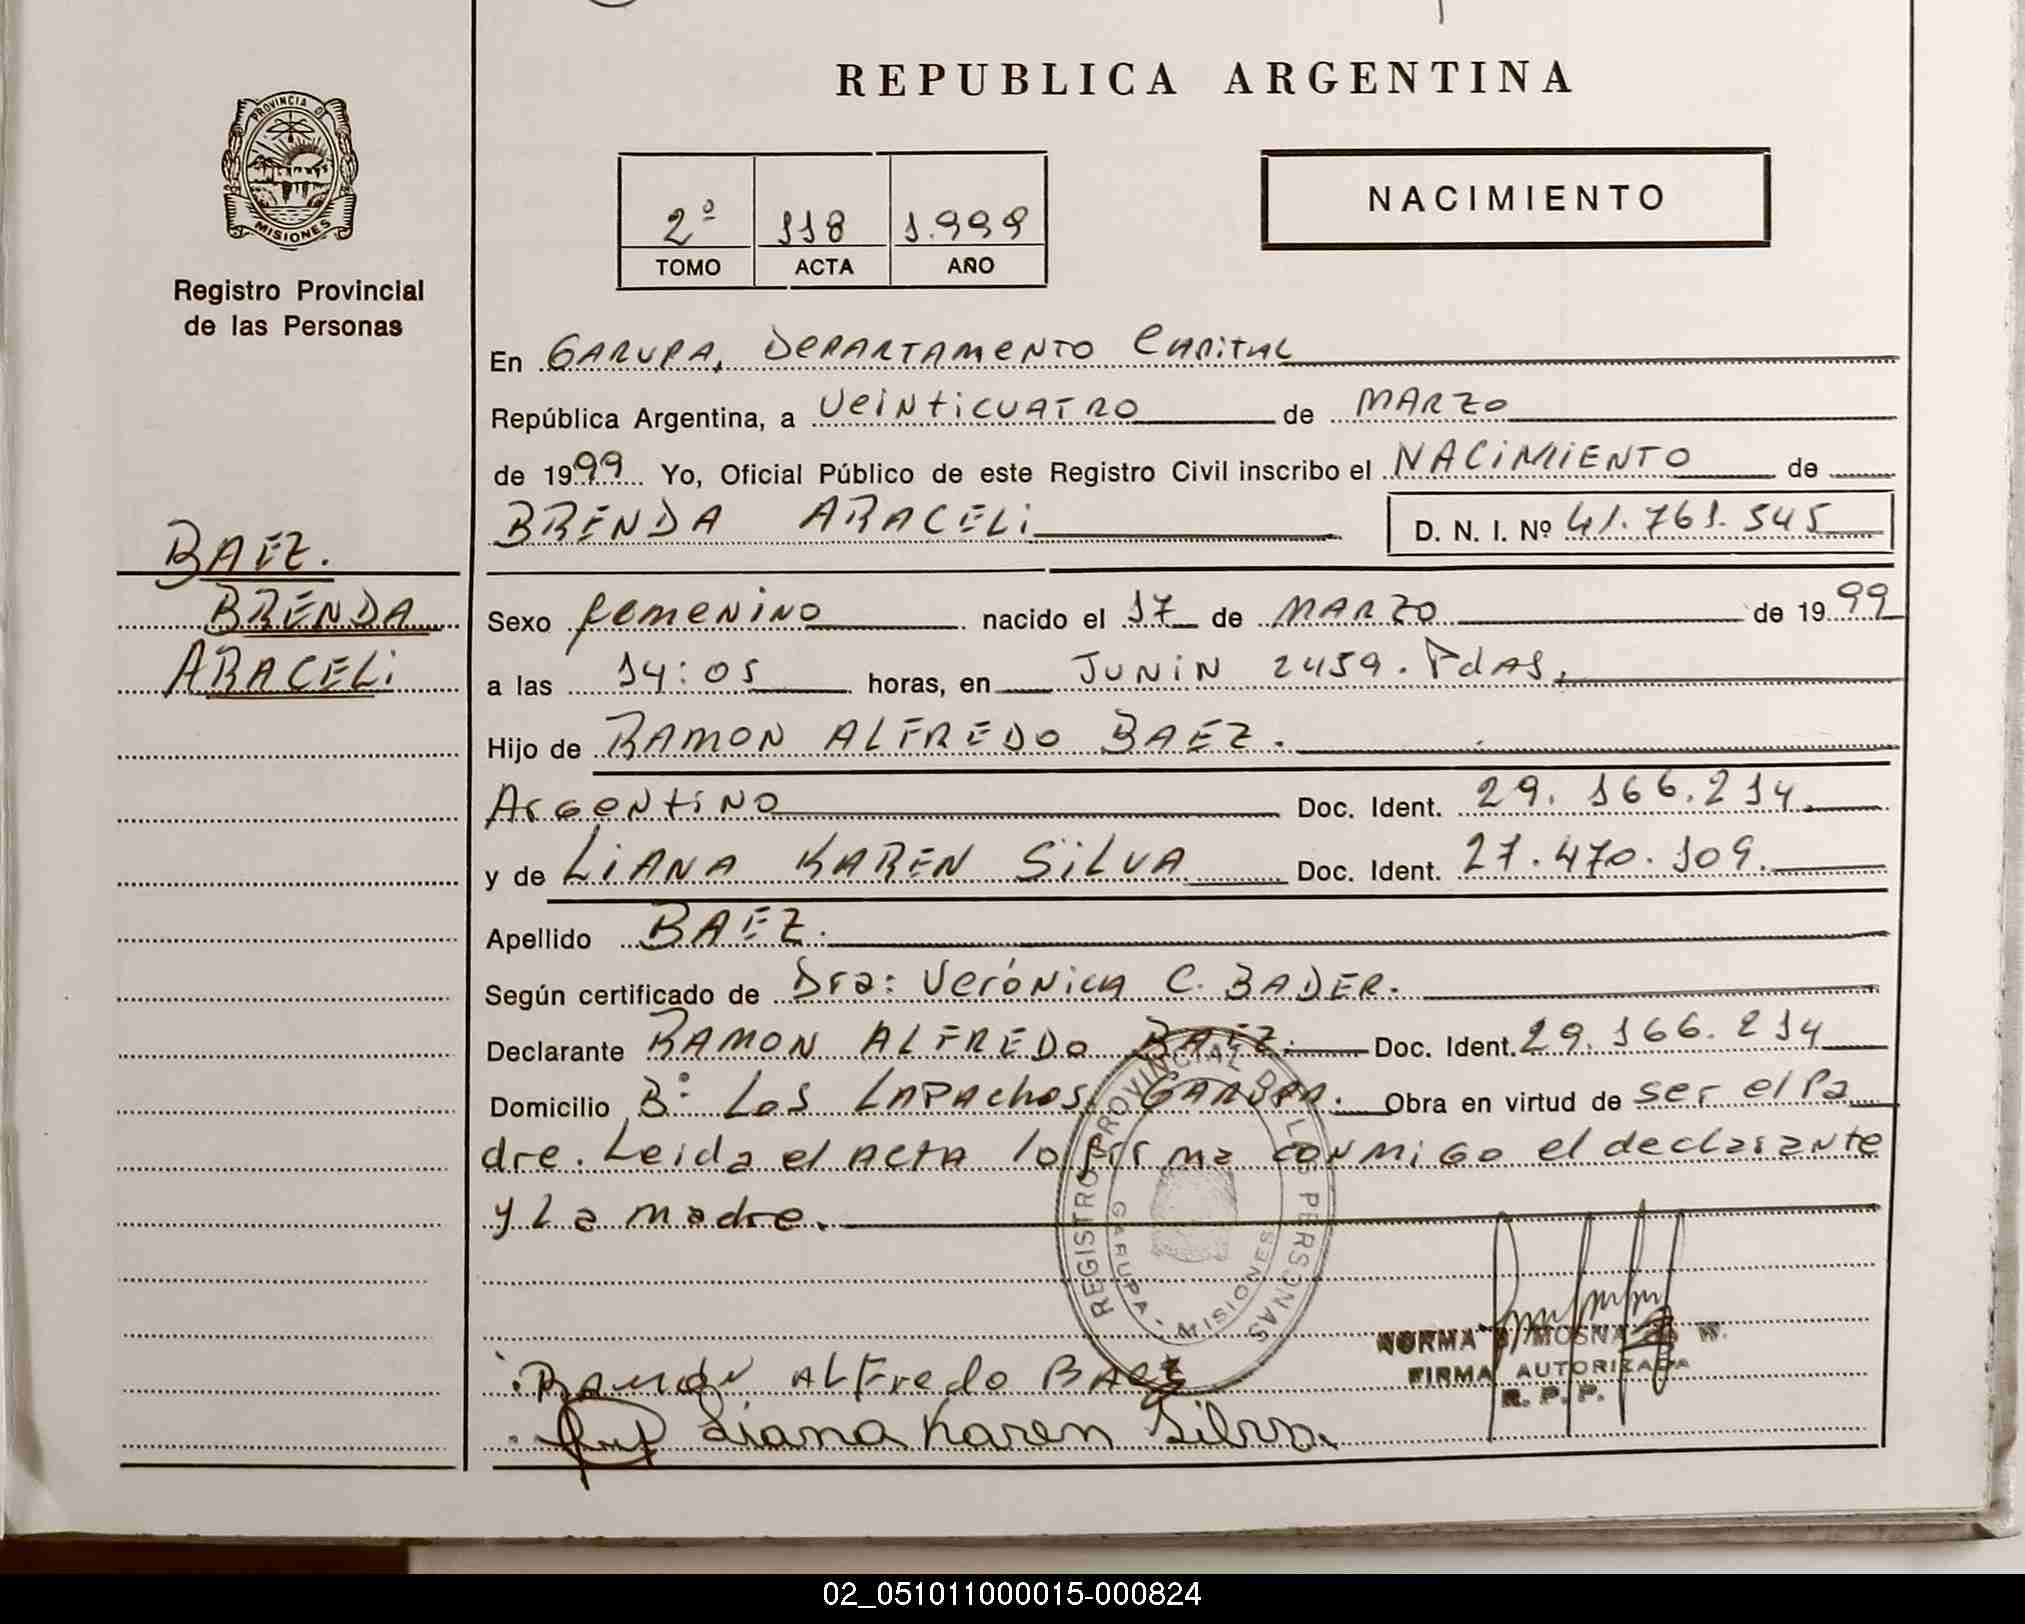 REPUBLICA ARGENTINA
PROVINCIA DE
MISIONES
Registro Provincial
de las Personas
2º 118 1.999
TOMO ACTA AÑO
NACIMIENTO
En GARUPA, DEPARTAMENTO CAPITAL
República Argentina, a VEINTICUATRO de MARZO
de 1999 Yo, Oficial Público de este Registro Civil inscribo el NACIMIENTO de
BRENDA ARACELI D. N. I. Nº 41.761.545
BAEZ.
BRENDA
ARACELI
Sexo femenino nacido el 17 de MARZO de 1999
a las 14:05 horas, en JUNIN 2459. Pdas,
Hijo de RAMON ALFREDO BAEZ.
Argentino Doc. Ident. 29.166.214.
y de LIANA KAREN SILVA Doc. Ident. 27.470.109.
Apellido BAEZ.
Según certificado de Dra: Verónica C. BADER.
Declarante RAMON ALFREDO BAEZ. Doc. Ident. 29.166.214
Domicilio B: Los LAPACHOS, GARUPA. Obra en virtud de ser el Pa
dre. Leida el ACTA lo firma conmigo el declarante
y La madre.
REGISTRO PROVINCIAL DE LAS PERSONAS
GARUPA - MISIONES
Ramón Alfredo Baez
Liana Karen Silva
NORMA MOSNA DE W.
FIRMA AUTORIZADA
R. P. P.
02_051011000015-000824